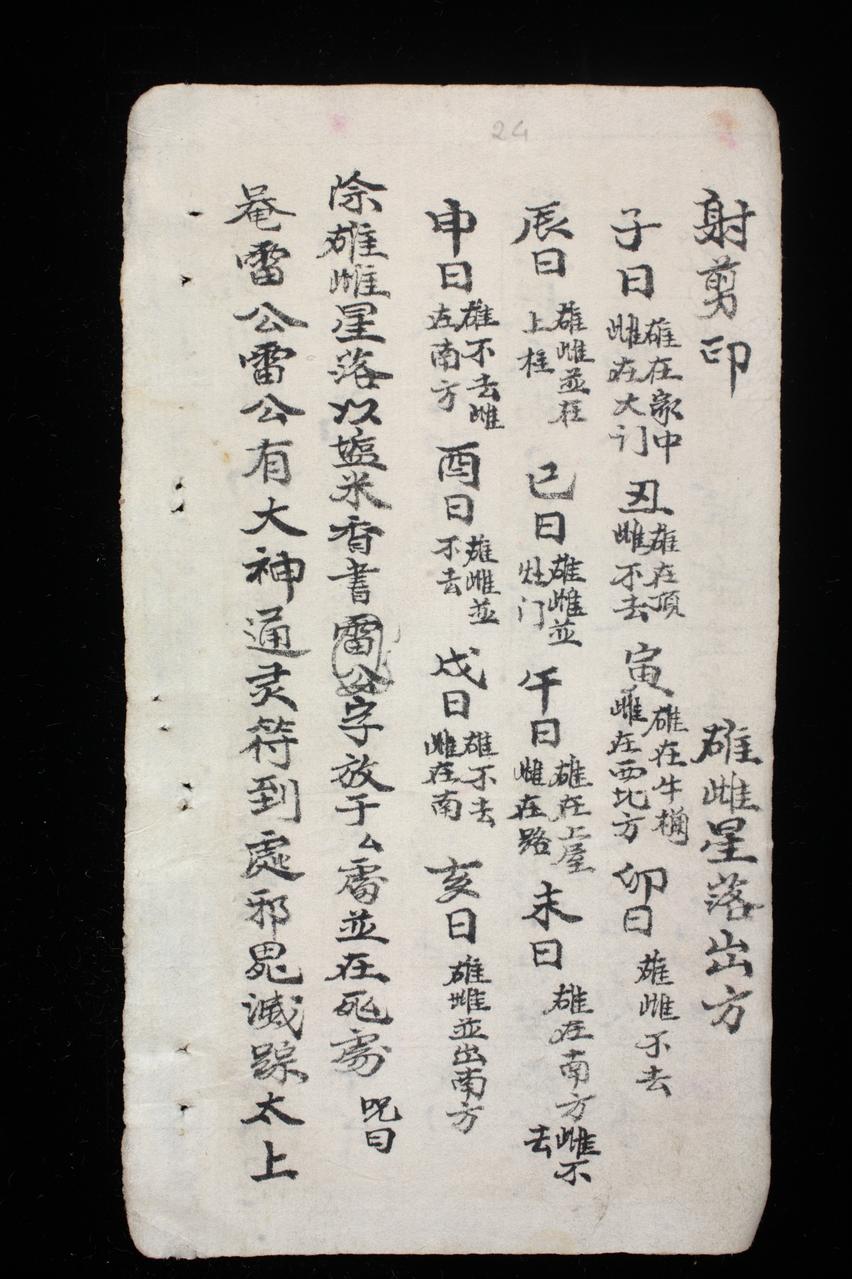 24
射剪印 雄雌星落出方
子日 雄在家中雌在大门 丑 雄在頂雌不去 寅 雄在牛桶雌在西北方 卯日 雄雌不去
辰日 雄雌並在上柱 己日 雄雌並灶门 午日 雄在上屋雌在路 未日 雄在南方雌不去
申日 雄不去雌在南方 酉日 雄雌並不去 戌日 雄不去雌在南 亥日 雄雌並出南方
除雄雌星落以塩米香書雷公字放于厶處並在死處 咒曰
奄雷公雷公有大神通灵符到處邪鬼滅踪太上